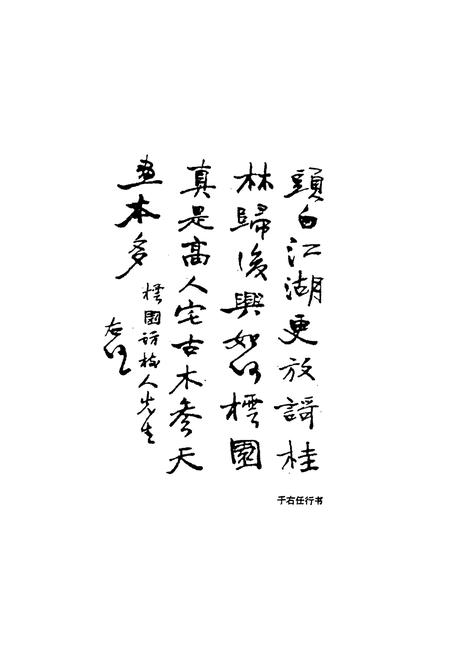 頭白江湖更放謌桂
林歸後興如何樗園
真是高人宅古木參天
畫本多
樗園訪樵人先生
右任
于右任行书